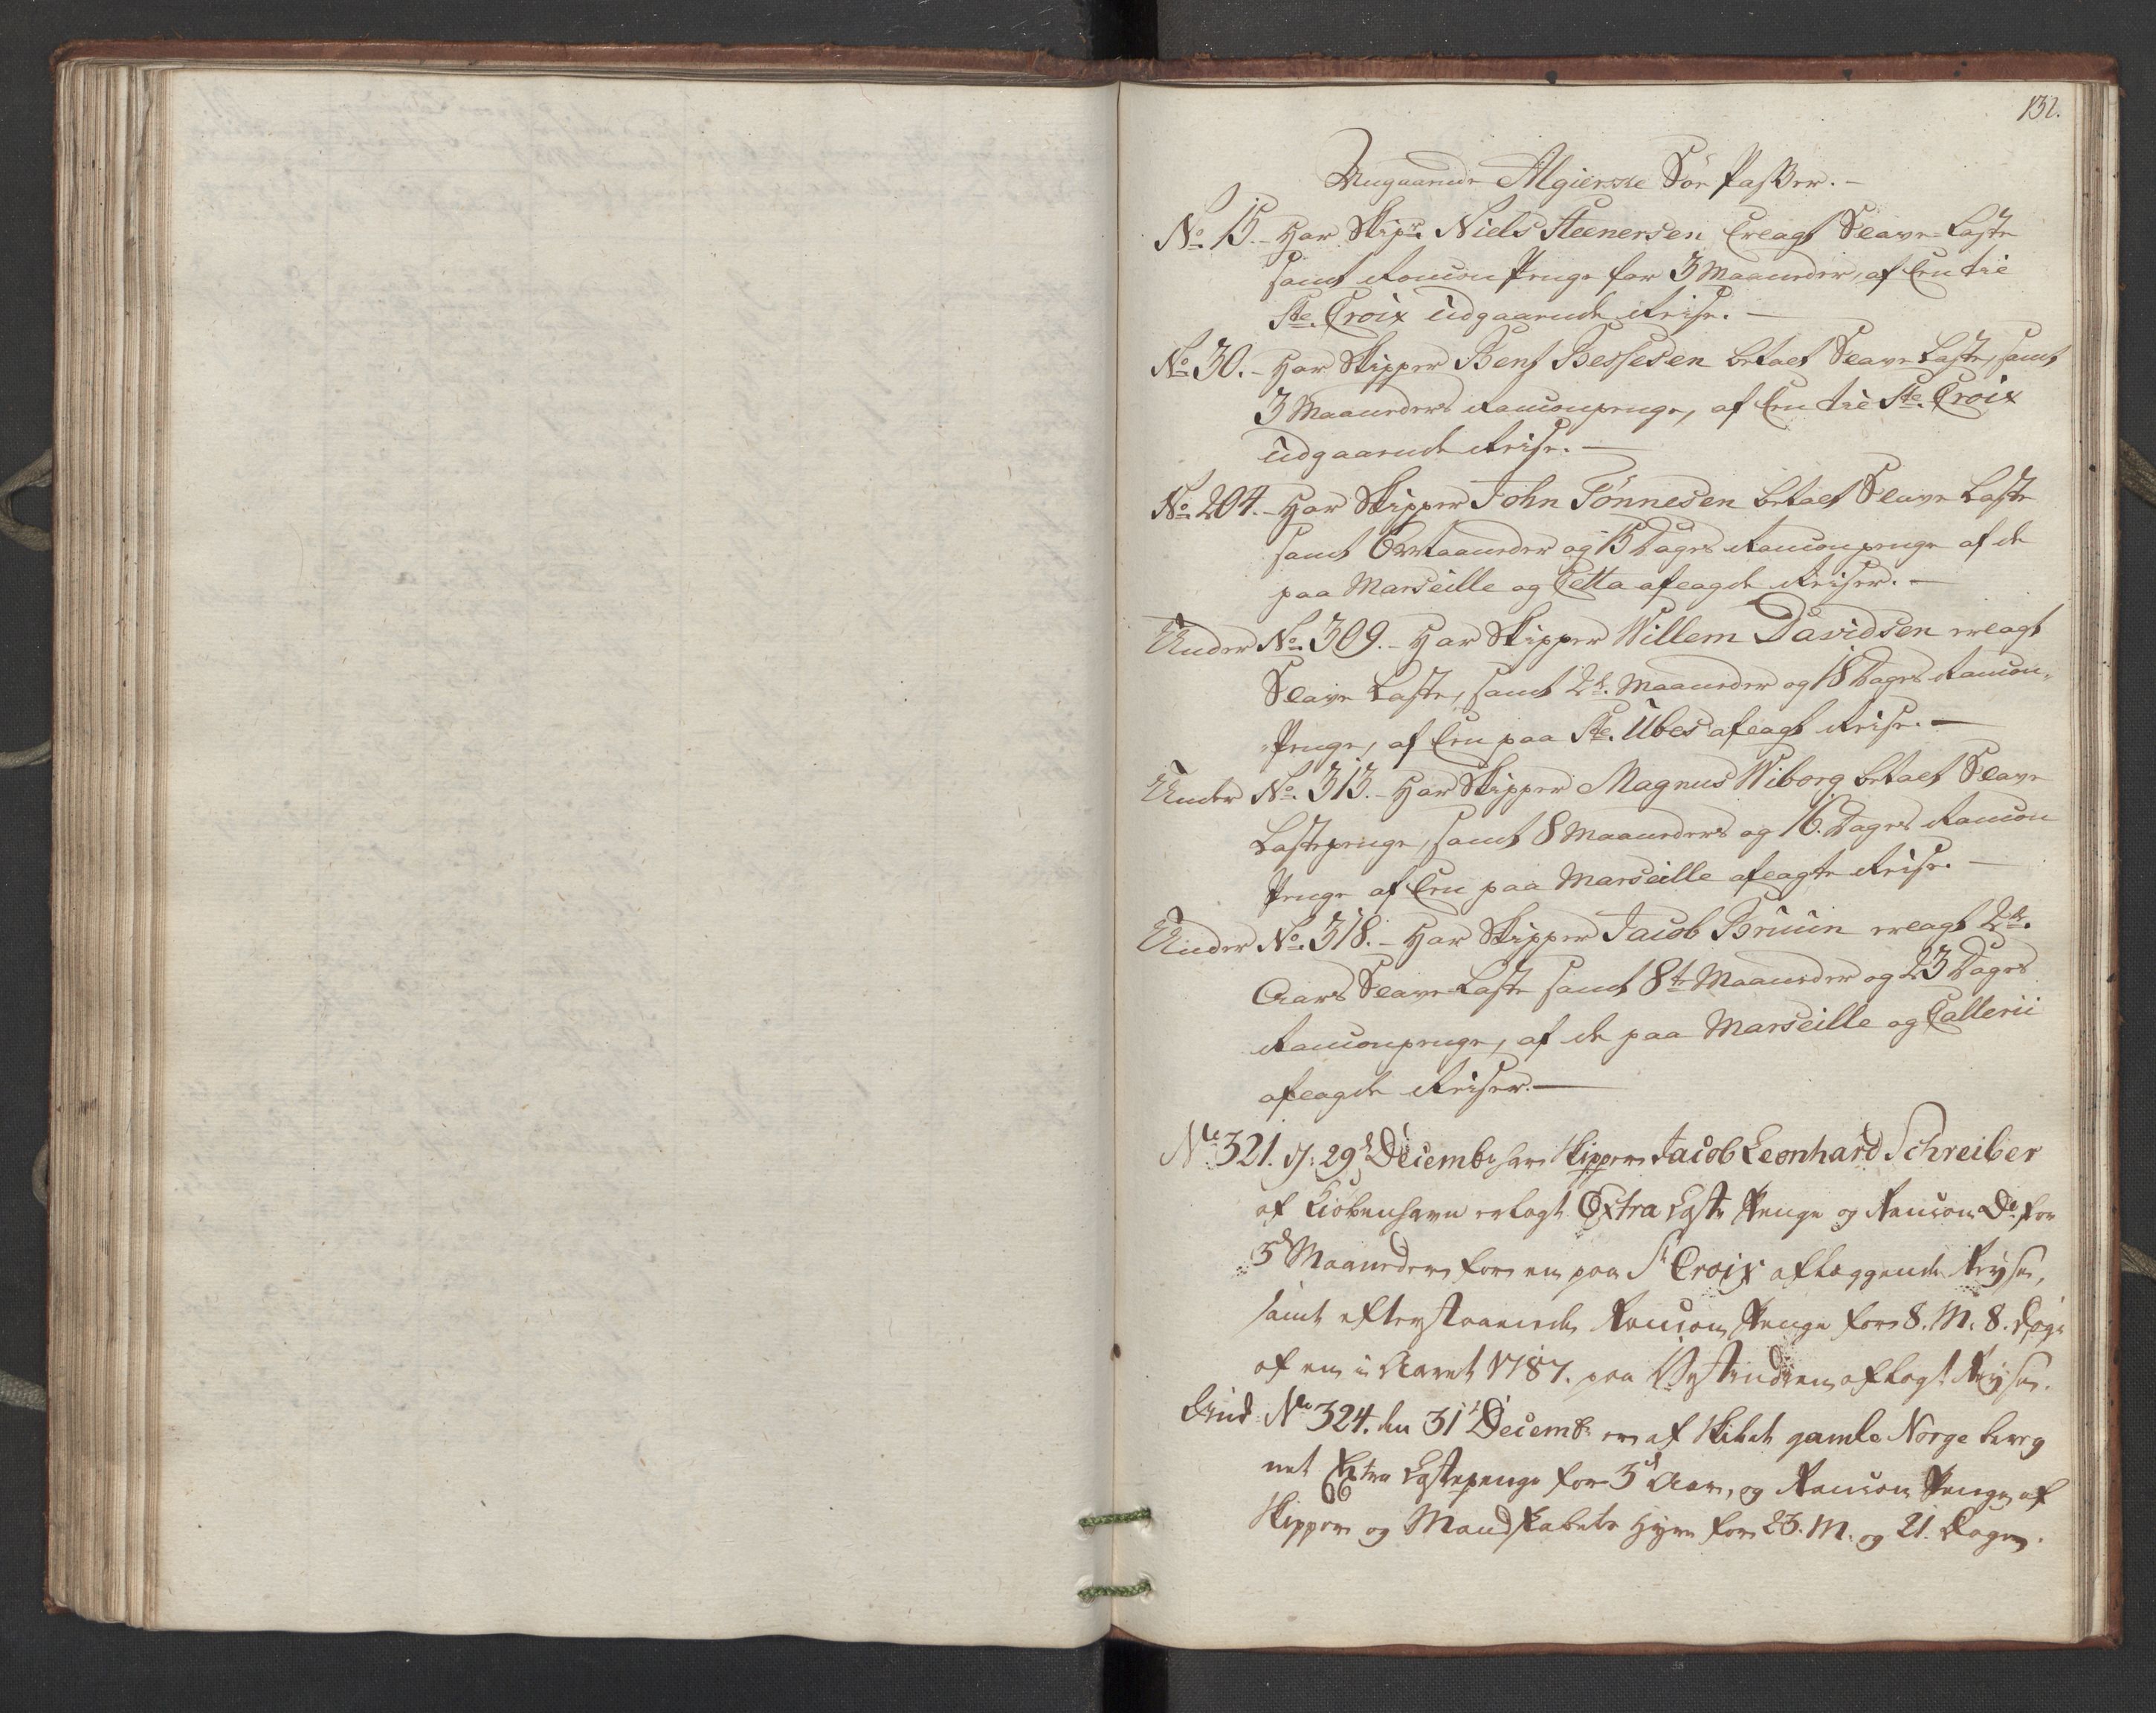 132.
Angaaende Algierske Söe Passer. -
No. 15. - Har Skipr. Niels Steenersen Erlagt Slave-Laste
samt Rancon Penge for 3 Maaneder, af En til
Ste. Croix udgaaende Reise. -
No. 30. - Har Skipper Benj Bessesen betalt Slave Laste, samt
3 Maaneders Ranconpenge, af En til Ste. Croix
udgaaende Reise. -
No. 204. - Har Skipper John Tönnesen betalt Slave Laste
samt 6 Maaneder og 15 Dages Ranconpenge af de
paa Marseille og Cetta aflagde Reiser. -
Under No. 309. - Har Skipper Willem Davidsen erlagt
Slave Laste, samt 2de. Maaneder og 18 Dages Rancon-
Penge, af En paa Ste. Ubes aflagt Reise. -
Under No. 313. - Har Skipper Magnus Wiborg betalt Slave
Lastepenge, samt 8 Maaneders og 16. Dages Rancon
Penge af En paa Marseille aflagte Reise. -
Under No. 318. - Har Skipper Jacob Bruun erlagt 2de.
Aars Slave-Laste samt 8te Maaneder og 23 Dages
Ranconpenge, af de paa Marseille og Callerii
aflagde Reiser. -
No 321. d: 29d Decembr har Skipper Jacob Leonhard Schreiber
af Kiöbenhavn erlagt Extra Laste Penge og Rancon Do for
3d Maaneder for en paa St Croix aflæggende Reyse,
samt efterstaaende Rancon Penge for 8. M. 8. Dage
af en i Aaret 1787. paa Vestindien aflagt Reyse.
Und No 324. den 31t Decembr er af Skibet gamle Norge bereg
net Extra Lastepenge for 3d Aar, og Rancon Penge af
Skipper og Mandskabets Hyre for 23. M. og 21. Dage.